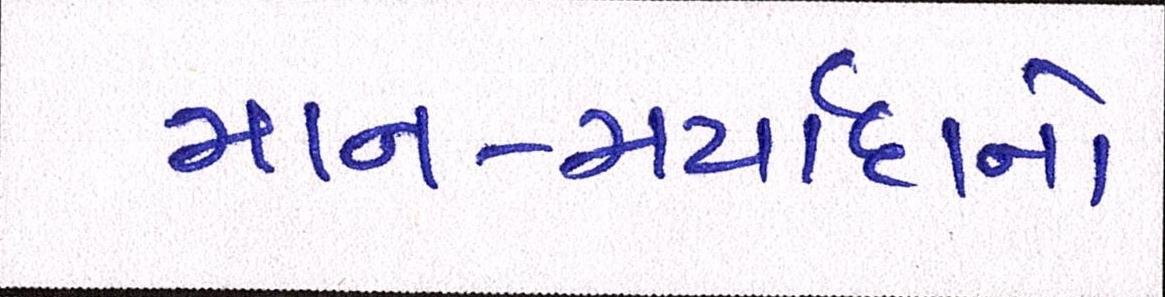 માન-મર્યાદાનો